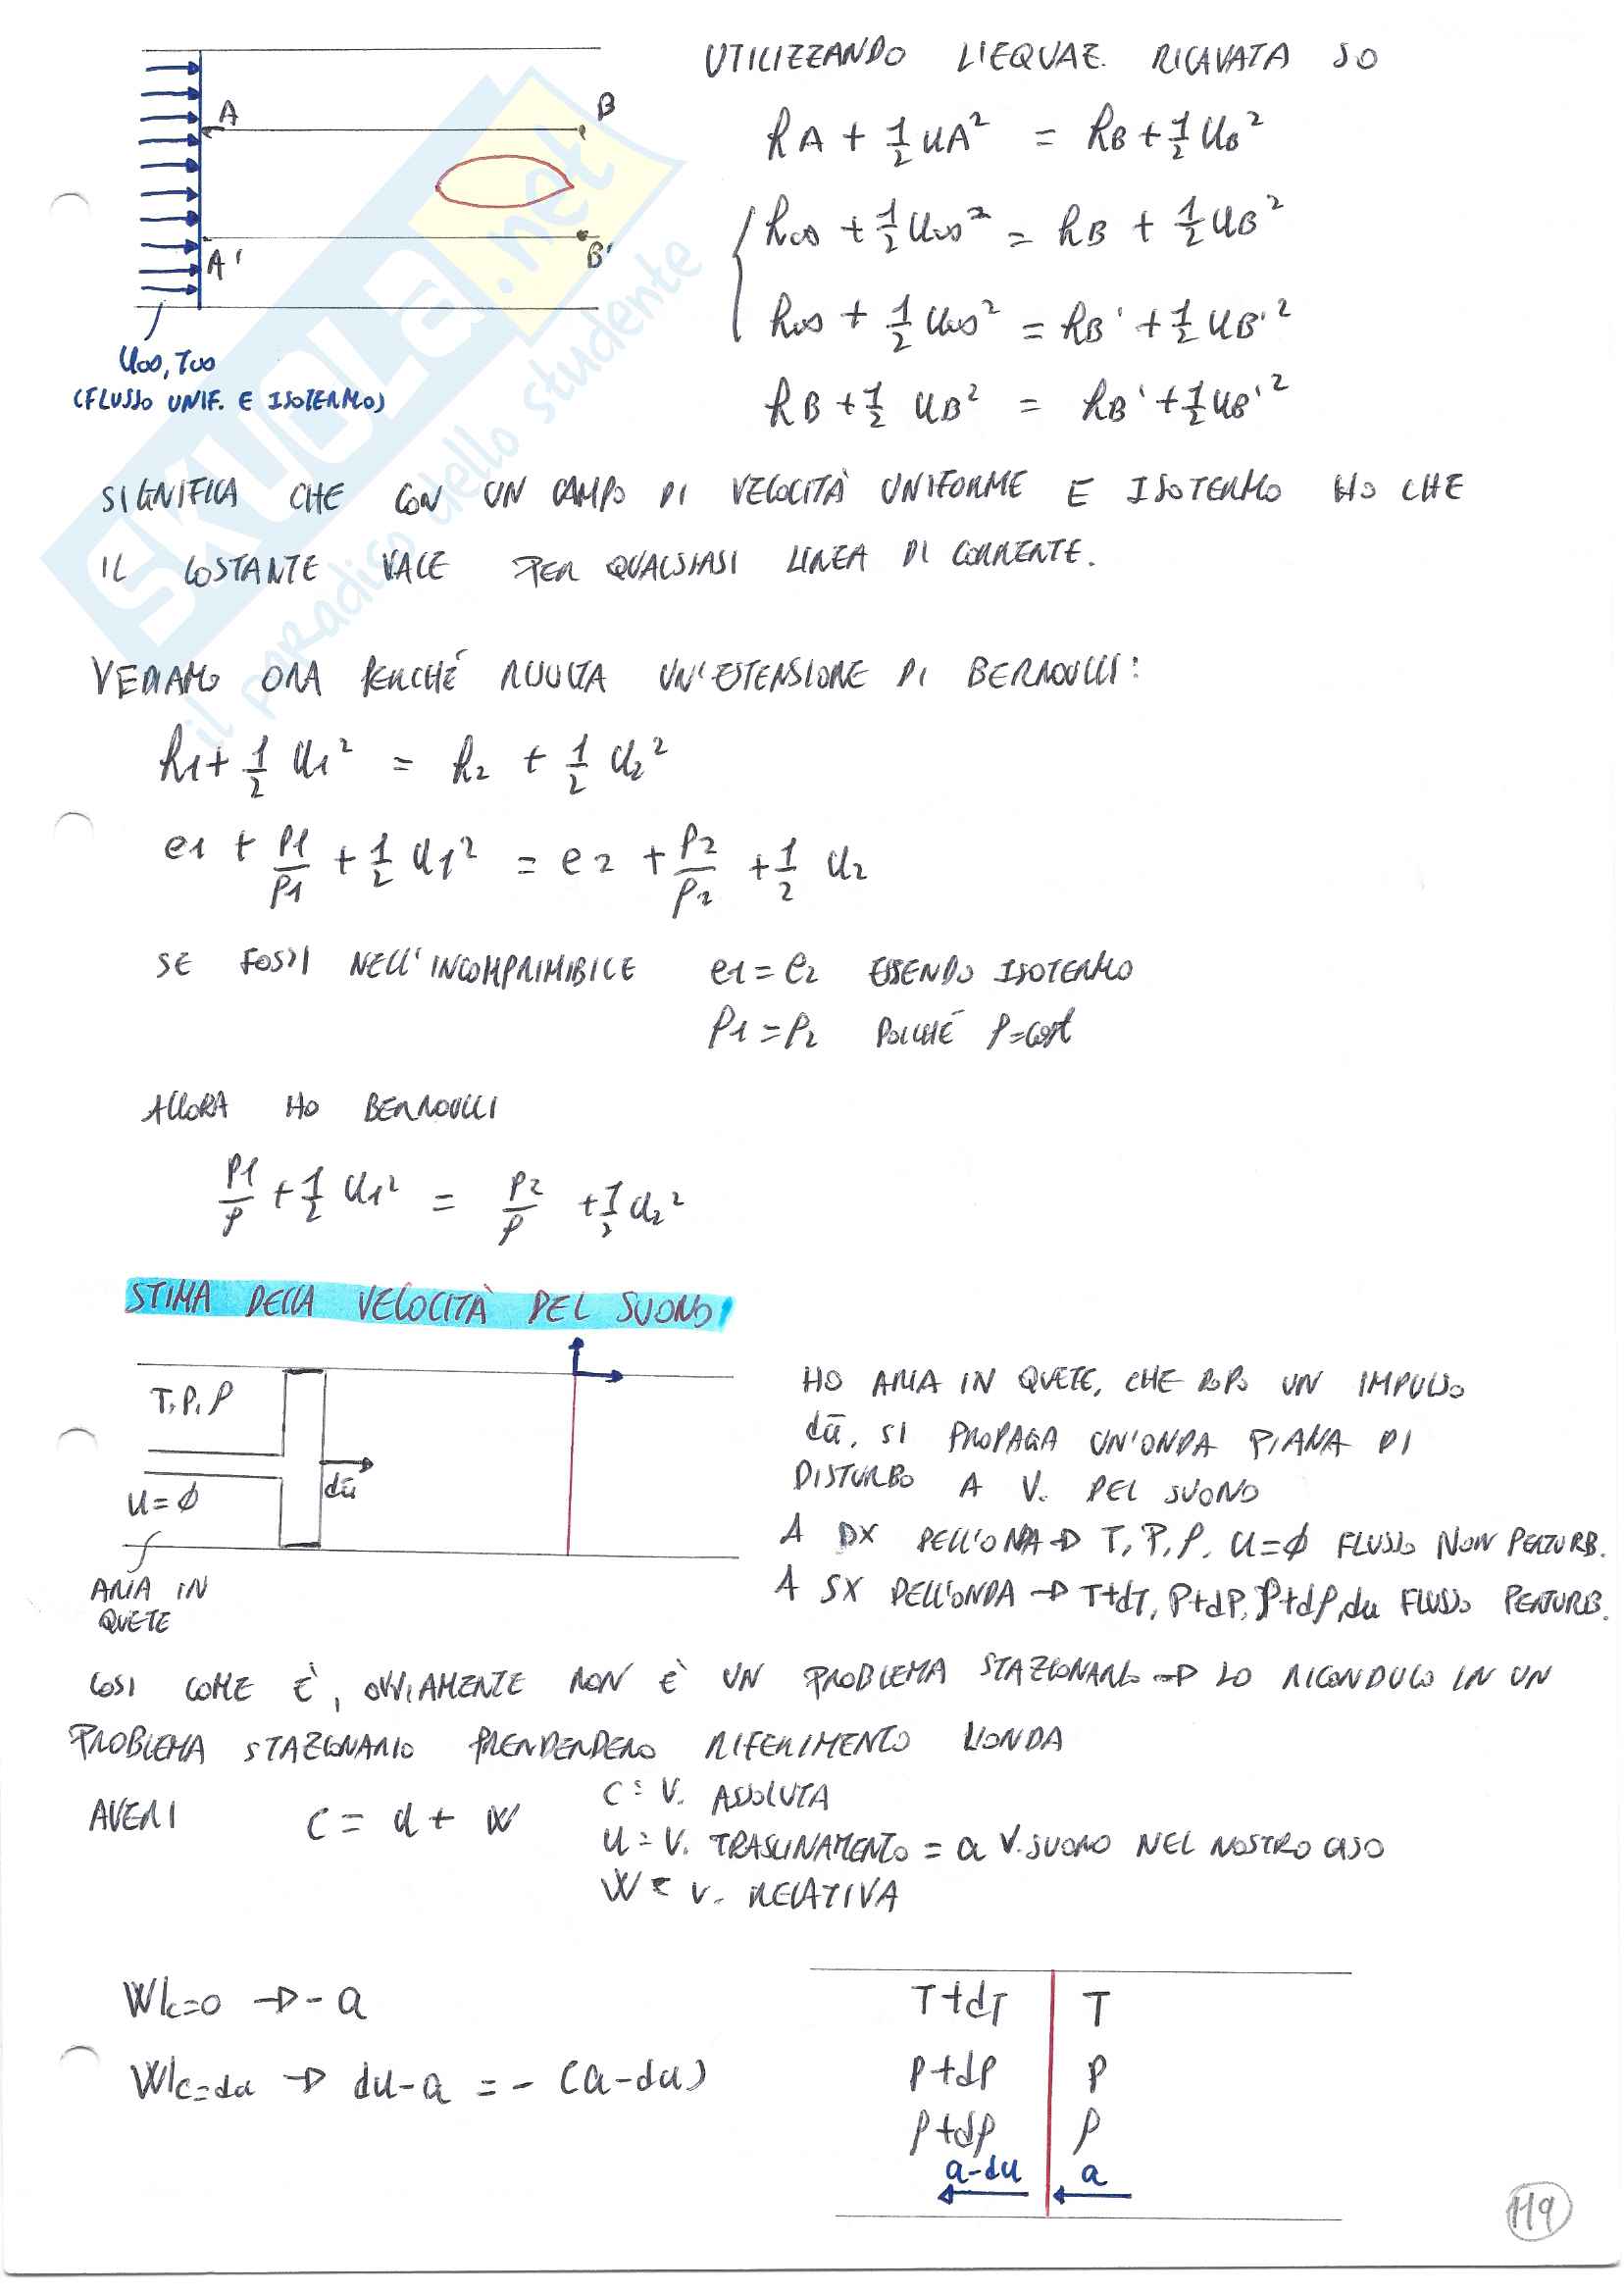 UTILIZZANDO L'EQUAZ. RICAVATA SO
A B
hA + 1/2 uA² = hB + 1/2 uB²
h∞ + 1/2 u∞² = hB + 1/2 uB²
A' B'
h∞ + 1/2 u∞² = hB' + 1/2 uB'²
u∞, T∞
(FLUSSO UNIF. E ISOTERMO)
hB + 1/2 uB² = hB' + 1/2 uB'²
SIGNIFICA CHE CON UN CAMPO DI VELOCITÀ UNIFORME E ISOTERMO HO CHE
IL COSTANTE VALE PER QUALSIASI LINEA DI CORRENTE.
VEDIAMO ORA PERCHÉ RISULTA UN'ESTENSIONE DI BERNOULLI:
h1 + 1/2 u1² = h2 + 1/2 u2²
e1 + P1/ρ1 + 1/2 u1² = e2 + P2/ρ2 + 1/2 u2
SE FOSSI NELL'INCOMPRIMIBILE e1 = e2 ESSENDO ISOTERMO
ρ1 = ρ2 POICHÉ ρ = cost
ALLORA HO BERNOULLI
P1/ρ + 1/2 u1² = P2/ρ + 1/2 u2²
STIMA DELLA VELOCITÀ DEL SUONO
T, P, ρ
u = ∅
dū
ARIA IN
QUETE
HO ARIA IN QUETE, CHE DOPO UN IMPULSO
dū, SI PROPAGA UN'ONDA PIANA DI
DISTURBO A V. DEL SUONO
A DX DELL'ONDA → T, P, ρ, u = ∅ FLUSSO NON PERTURB.
A SX DELL'ONDA → T+dT, P+dP, ρ+dρ, du FLUSSO PERTURB.
COSI COME È, OVVIAMENTE NON È UN PROBLEMA STAZIONARIO → LO RICONDUCO IN UN
PROBLEMA STAZIONARIO PRENDENDERO RIFERIMENTO L'ONDA
AVERI C = u + W
C = V. ASSOLUTA
u = V. TRASCINAMENTO = a V. SUONO NEL NOSTRO CASO
W = V. RELATIVA
W|c=0 → -a
W|c=du → du - a = - (a - du)
T+dT T
P+dP P
ρ+dρ ρ
a-du a
119
SKUOLA.net
il paradiso dello studente